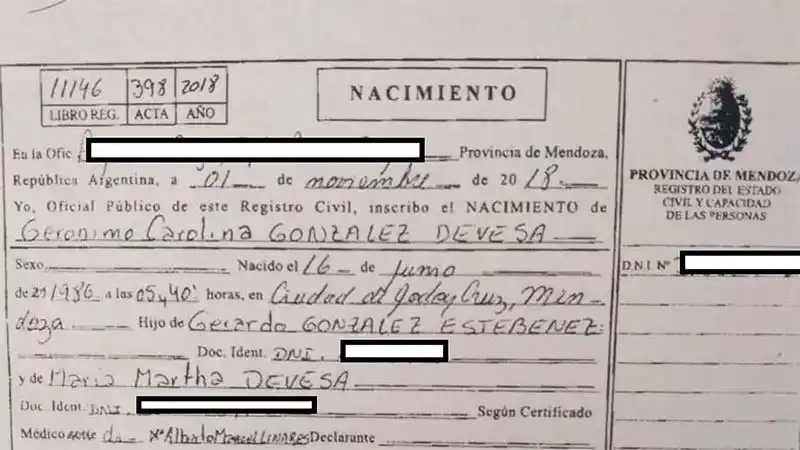 11146 398 2018
LIBRO REG. ACTA AÑO
NACIMIENTO
En la Ofic Provincia de Mendoza,
República Argentina, a 01 de noviembre de 2018.
Yo, Oficial Público de este Registro Civil, inscribo el NACIMIENTO de
Geronimo Carolina GONZALEZ DEVESA
Sexo Nacido el 16 de Junio
de 1986 a las 05,40 horas, en Ciudad de Godoy Cruz, Men-
doza Hijo de Gerardo GONZALEZ ESTEBENEZ
Doc. Ident. DNI.
y de Maria Martha DEVESA
Doc Ident. DNI. Según Certificado
Médico de Alberto LLINARES Declarante
PROVINCIA DE MENDOZA
REGISTRO DEL ESTADO
CIVIL Y CAPACIDAD
DE LAS PERSONAS
D.N.I. Nº